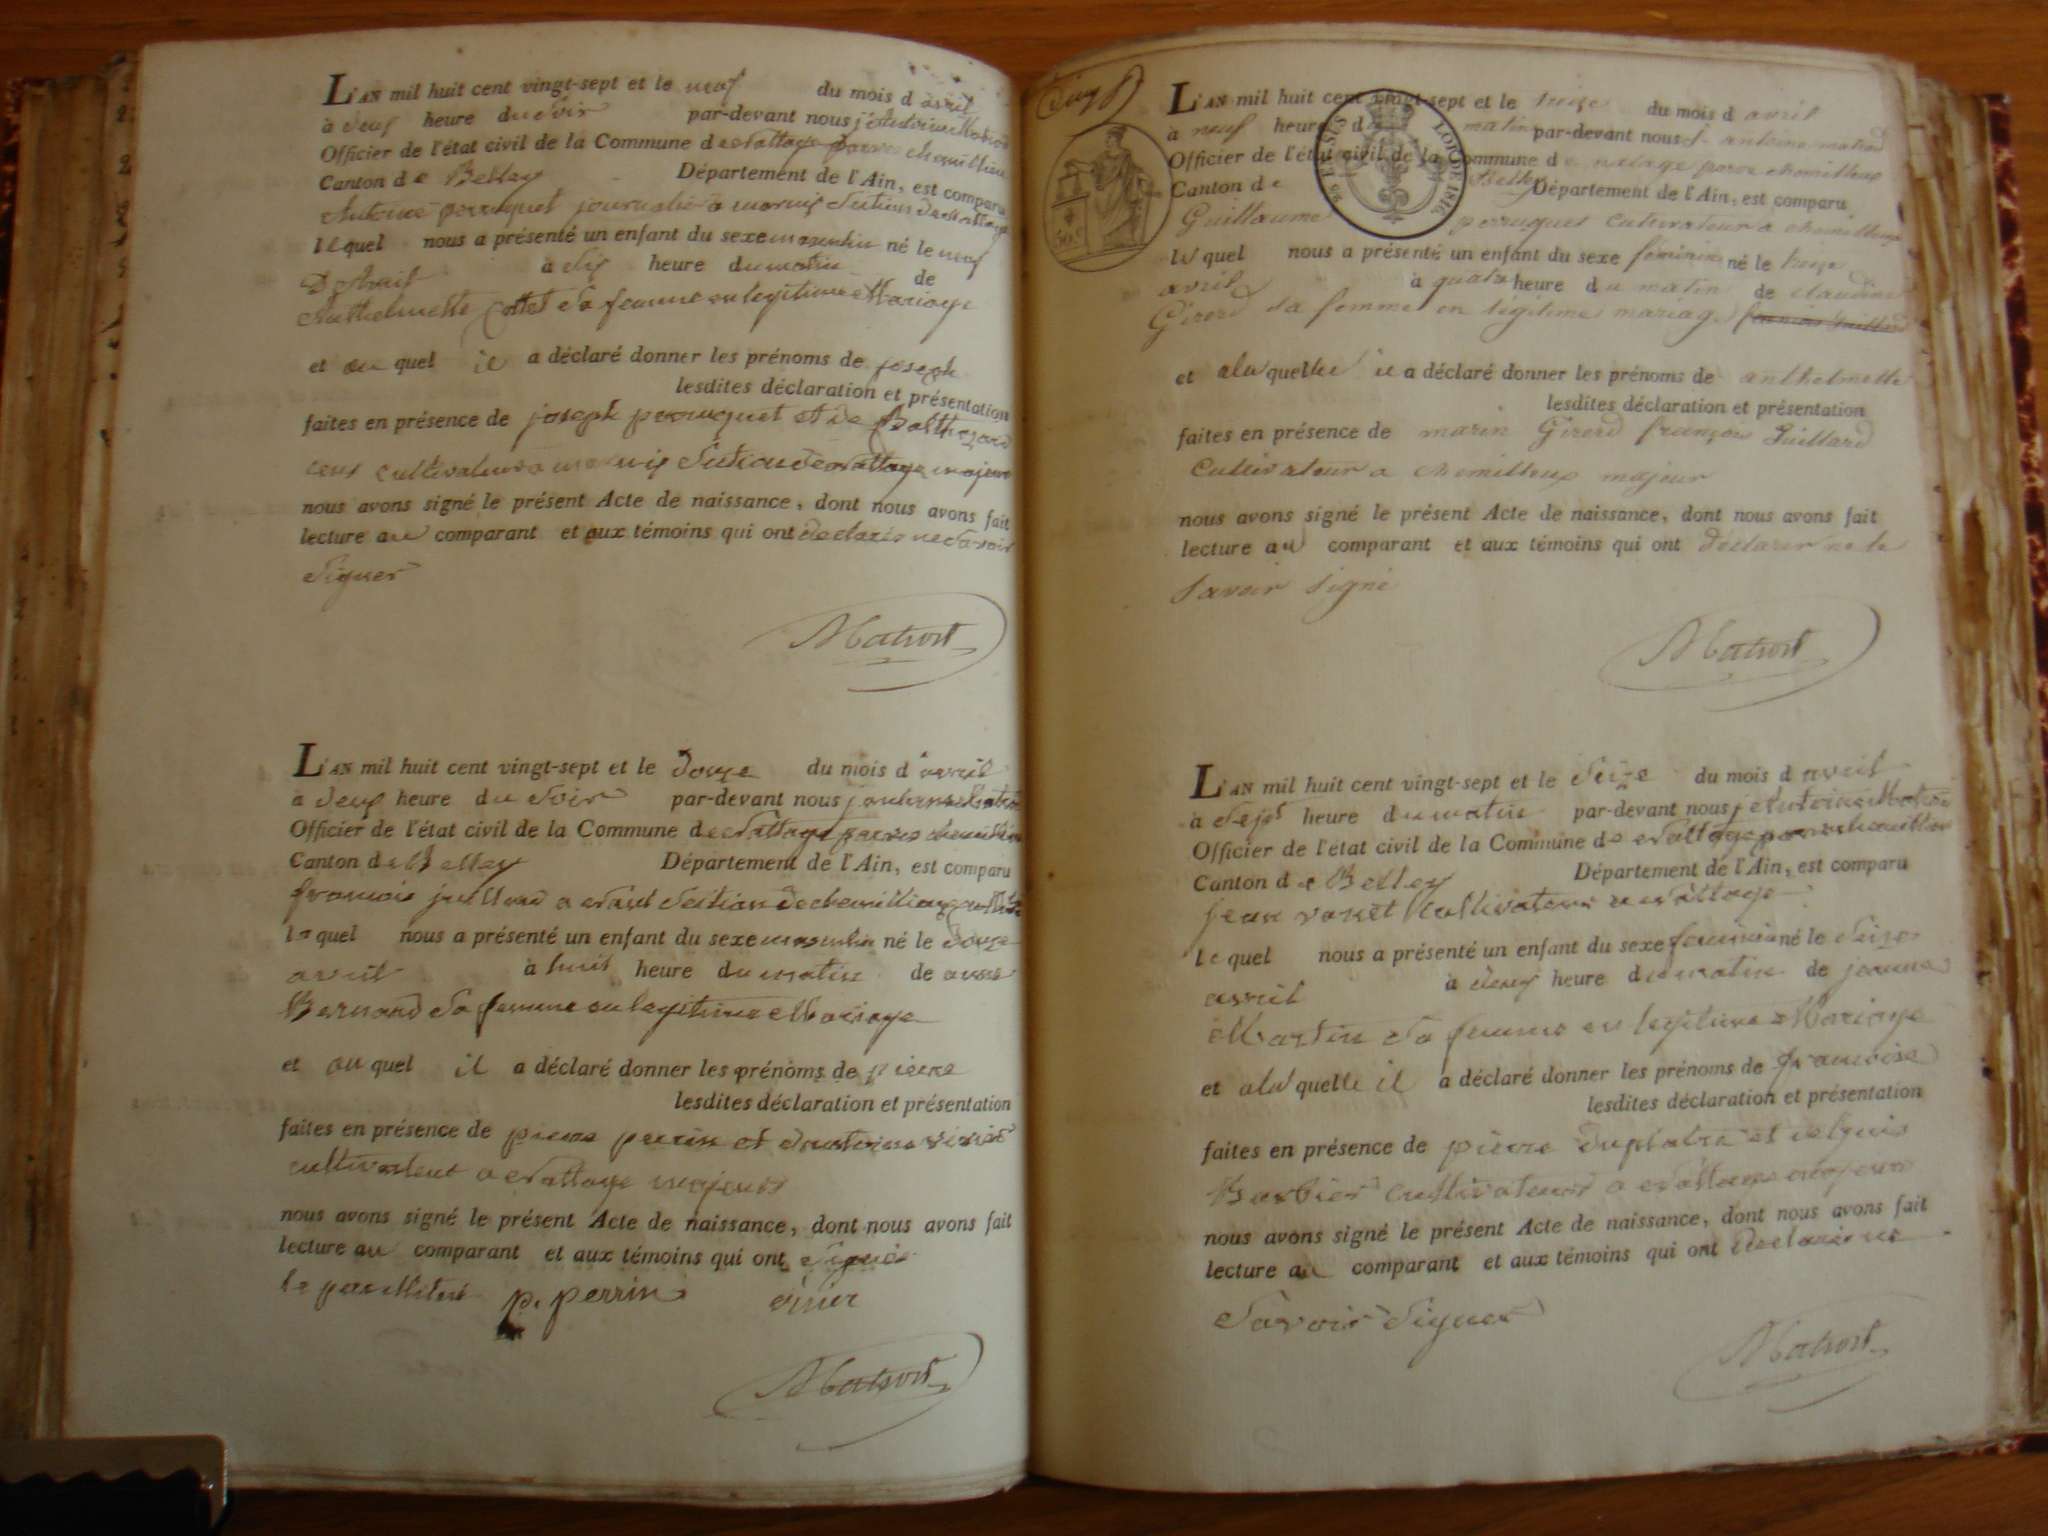 L'AN mil huit cent vingt-sept et le neuf du mois d avril
à deux heure du soir par-devant nous j Antoine Matrod
Officier de l'état civil de la Commune de parves
Canton de Belley Département de l'Ain, est comparu
Antoine perruquet journalier a
lequel nous a présenté un enfant du sexe masculin né le neuf
D Avril à dix heure du matin de
Anthelmette sa femme en legitime Mariage
et au quel il a déclaré donner les prénoms de joseph
lesdites déclaration et présentation
faites en présence de joseph perruquet et de Balthazard
nous avons signé le présent Acte de naissance, dont nous avons fait
lecture au comparant et aux témoins qui ont declarés ne savoir
signer
Matrod
L'AN mil huit cent vingt-sept et le douze du mois d avril
a deux heure du soir par-devant nous j antoine Matrod
Officier de l'état civil de la Commune de parves
Canton de Belley Département de l'Ain, est comparu
francois juillard a section de
le quel nous a présenté un enfant du sexe masculin né le douze
avril à huit heure du matin de
Bernard sa femme en legitime Mariage
et au quel il a déclaré donner les prénoms de pierre
lesdites déclaration et présentation
faites en présence de pierre perrin et d'antoine
cultivateur a majeurs
nous avons signé le présent Acte de naissance, dont nous avons fait
lecture au comparant et aux témoins qui ont signés
p. perrin
Matrod
L'AN mil huit cent vingt-sept et le treize du mois d avril
à neuf heure du matin par-devant nous j. antoine matrod
Officier de l'état civil de la Commune de parve
Canton de Belley Département de l'Ain, est comparu
Guillaume perruquet cultivateur a
le quel nous a présenté un enfant du sexe féminin né le treize
avril à quatre heure du matin de claudine
Girerd sa femme en légitime mariage
et a la quelle il a déclaré donner les prénoms de anthelmette
lesdites déclaration et présentation
faites en présence de marin Girerd françois Juillard
Cultivateur a majeur
nous avons signé le présent Acte de naissance, dont nous avons fait
lecture au comparant et aux témoins qui ont déclarer ne le
savoir signé
Matrod
L'AN mil huit cent vingt-sept et le seize du mois d avril
à sept heure du matin par-devant nous j Antoine Matrod
Officier de l'état civil de la Commune de
Canton de Belley Département de l'Ain, est comparu
jean cultivateur
le quel nous a présenté un enfant du sexe feminin né le seize
avril à deux heure du matin de jeanne
Martin sa femme en legitime Mariage
et a la quelle il a déclaré donner les prénoms de francoise
lesdites déclaration et présentation
faites en présence de pierre et
Barbier cultivateurs a
nous avons signé le présent Acte de naissance, dont nous avons fait
lecture au comparant et aux témoins qui ont declaré ne
savoir signer
Matrod